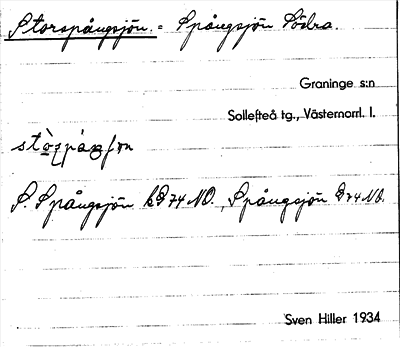 Storspångsjön. = Spångsjön Södra.
Graninge s:n
Sollefteå tg., Västernorrl. l.
S. Spångsjön 74 NO., Spångsjön 74 NO.
Sven Hiller 1934